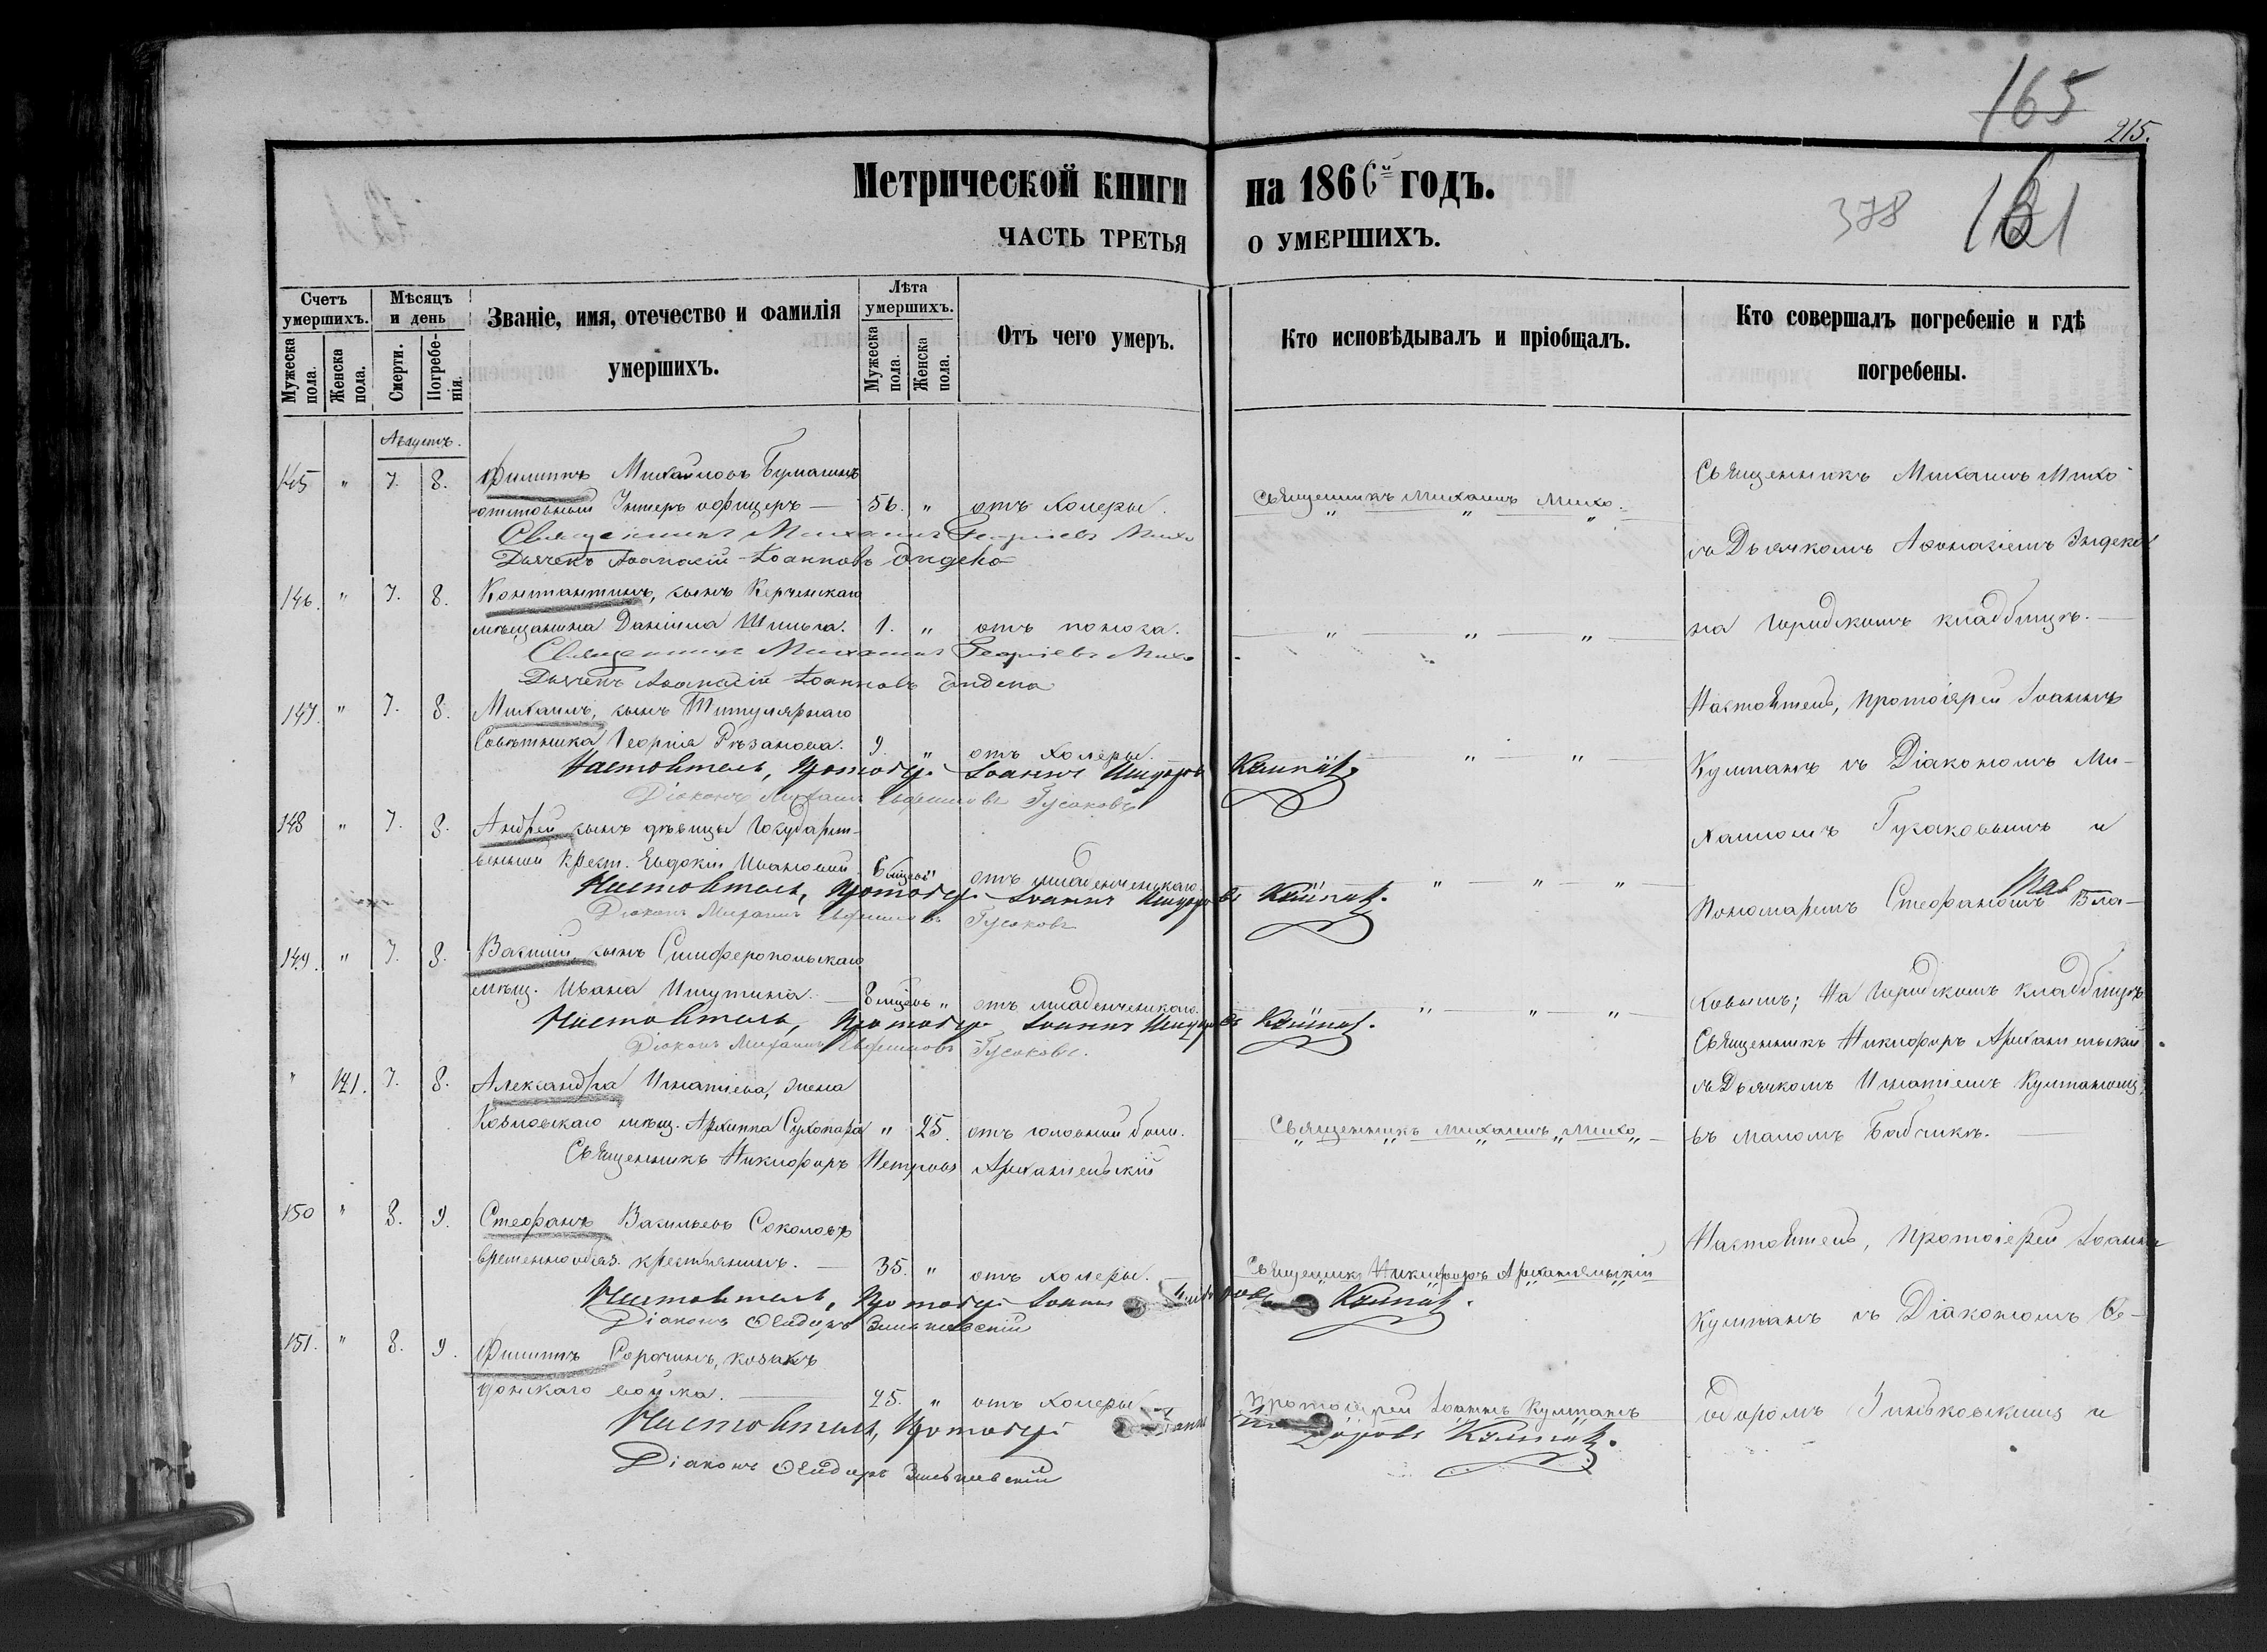 165
215.
Метрической книги на 1866й годъ.
378 161
ЧАСТЬ ТРЕТЬЯ О УМЕРШИХЪ.
Счетъ умершихъ.
Мужеска пола.
Женска пола.
Мѣсяцъ и день
Смерти.
Погребенія.
Званіе, имя, отечество и фамилія умершихъ.
Лѣта умершихъ.
Мужеска пола.
Женска пола.
Отъ чего умеръ.
Кто исповѣдывалъ и пріобщалъ.
Кто совершалъ погребеніе и гдѣ погребены.
Августъ.
145 " 7. 8. Филиппъ Михайловъ
отставный Унтеръ офицеръ — 56. " отъ холеры. Священникъ Михаилъ Михо
Священникъ Михаилъ Георгіевъ Михо
Дьячекъ Аѳанасій Іоанновъ Индеко
146. " 7. 8. Константинъ, сынъ Керченскаго
мѣщанина Даніила 1. " отъ поноса. " " "
Священникъ Михаилъ Георгіевъ Михо
Дьячекъ Аѳанасій Іоанновъ Индеко
147. " 7. 8. Михаилъ, сынъ Титулярнаго
Совѣтника Георгія Рѣзанова. 9. " отъ холеры. " "
Настоятель, Протоіер. Іоаннъ
Діаконъ Михаилъ Гусаковъ
148 " 7. 8. Андрей сынъ дѣвицы Государст-
венныхъ Крест. Евдокіи Ивановой 6 мцевъ " отъ младенческаго. " " "
Настоятель, Протоіер. Іоаннъ
Діаконъ Михаилъ Гусаковъ
149. " 7. 8. Василій сынъ Симферопольскаго
мѣщ. Ивана Ишутина. — 8 мцевъ " отъ младенческаго. " " "
Настоятель, Протоіер. Іоаннъ
Діаконъ Михаилъ Гусаковъ.
" 121. 7. 8. Александра Игнатіева, жена
Козловскаго мѣщ. Архиппа Сухопара " 25. отъ головной боли. Священникъ Михаилъ Михо
Священникъ Никифоръ Петровъ Архангельскій
150 " 8. 9. Стефанъ Васильевъ Соколовъ
временнообяз. крестьянинъ. — 35. " отъ холеры. Священикъ Никифоръ Архангельскій
Настоятель, Протоіер. Іоаннъ
Діаконъ Ѳеодоръ Зиньковскій
151. " 8. 9. Филиппъ Сорочинъ, козакъ
донскаго войска. — 25. " отъ холеры Протоіерей Іоаннъ Кулшанъ
Настоятель, Протоіер. Іоаннъ
Діаконъ Ѳеодоръ Зиньковскій
Священникъ Михаилъ Михо
съ Дьячкомъ Аѳонасіемъ Индекой
на городскомъ кладбищѣ.
Настоятель, Протоіерей Іоаннъ
съ Діакономъ Ми-
хаиломъ Гусаковымъ и
Пономаремъ Стефаномъ
ковымъ; На Городскомъ кладбищѣ
Священникъ Никифоръ Архангельскій
съ Дьячкомъ Игнатіемъ
въ маломъ
Настоятель, Протоіерей Іоаннъ
съ Діакономъ Ѳе-
одоромъ Зиньковскимъ и